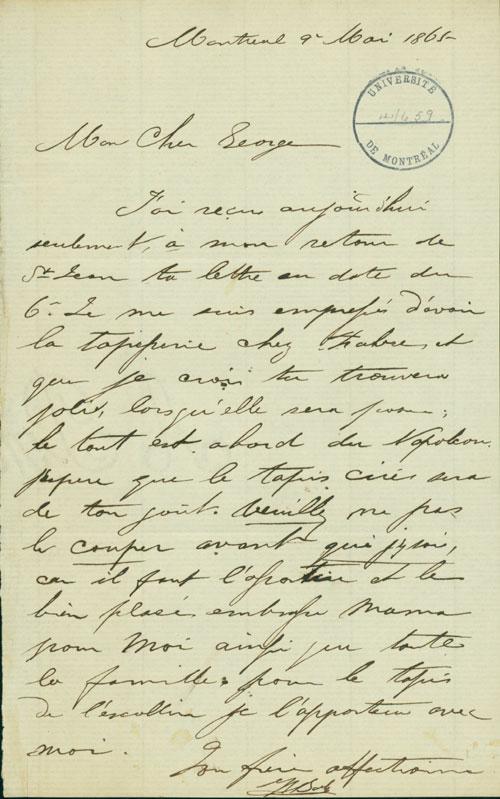 Montreal 9 Mai 1865
UNIVERSITÉ
DE MONTRÉAL
Mon Cher George
J'ai reçu aujourd'hui
seulement, à mon retour de
St Jean ta lettre en date du
6. Je me suis empressé d'avoir
la tapisserie chez Fabre, et
que je crois tu trouvera
jolie, lorsqu'elle sera posée;
le tout est abord du Napoleon.
j'espere que le tapis ciré sera
de ton goût. Veuillez ne pas
le couper avant que j'y soi,
car il faut l' et le
bien plasé embrasse Mama
pour Moi ainsi que toute
la famille, pour le tapis
de l'escallier je l'apporterai avec
moi.
Ton frère affectionné